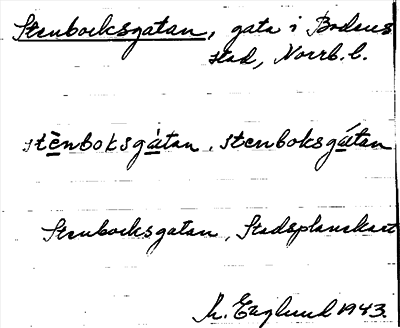 Stenbocksgatan, gata i Bodens
stad, Norrb. l.
stènboksgàtan, stenboksgátan
Stenbocksgatan, Stadsplanekart
M. Englund 1943.